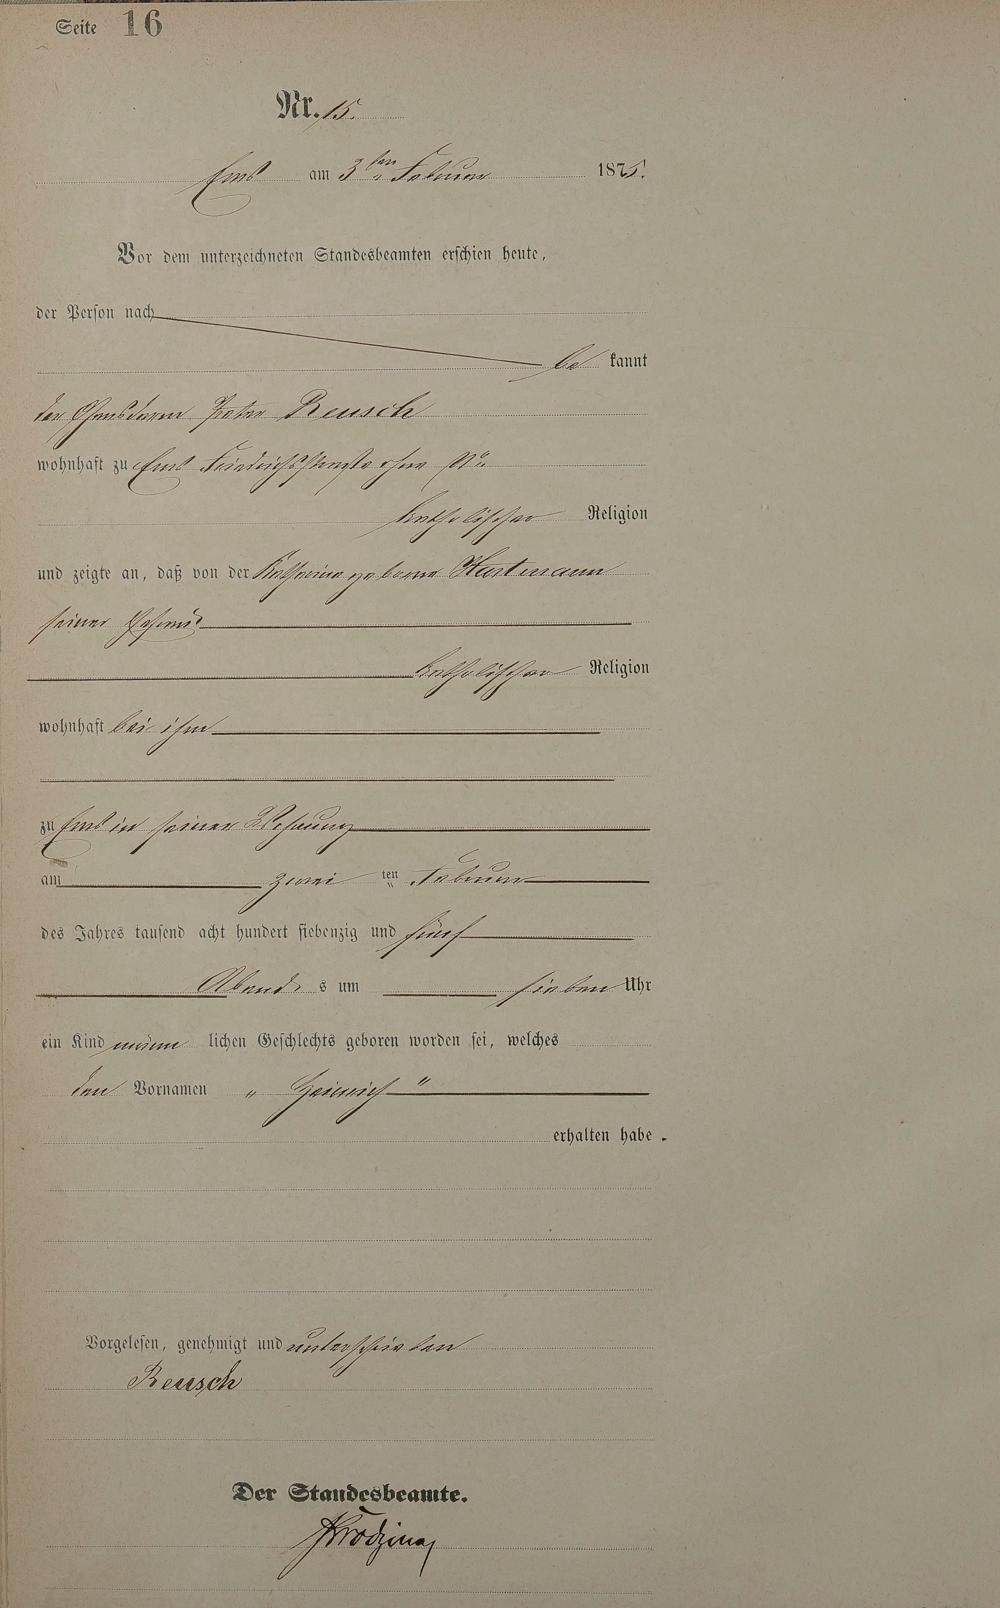 Seite 16
Nr. 15.
Ems am 3ten Februar 1875.
Vor dem unterzeichneten Standesbeamten erschien heute,
der Person nach
be kannt
der Gensdarm Peter Reusch
wohnhaft zu Ems Friedrichsstraße ohne No
katholischer Religion
und zeigte an, daß von der Katharina geborne Hartmann
seiner Ehefrau
katholischer Religion
wohnhaft bei ihm
zu Ems in seiner Wohnung
am zwei ten Februar
des Jahres tausend acht hundert siebenzig und fünf
Abend s um sieben Uhr
ein Kind männ lichen Geschlechts geboren worden sei, welches
den Vornamen " Heinrich "
erhalten habe.
Vorgelesen, genehmigt und unterschrieben
Reusch
Der Standesbeamte.